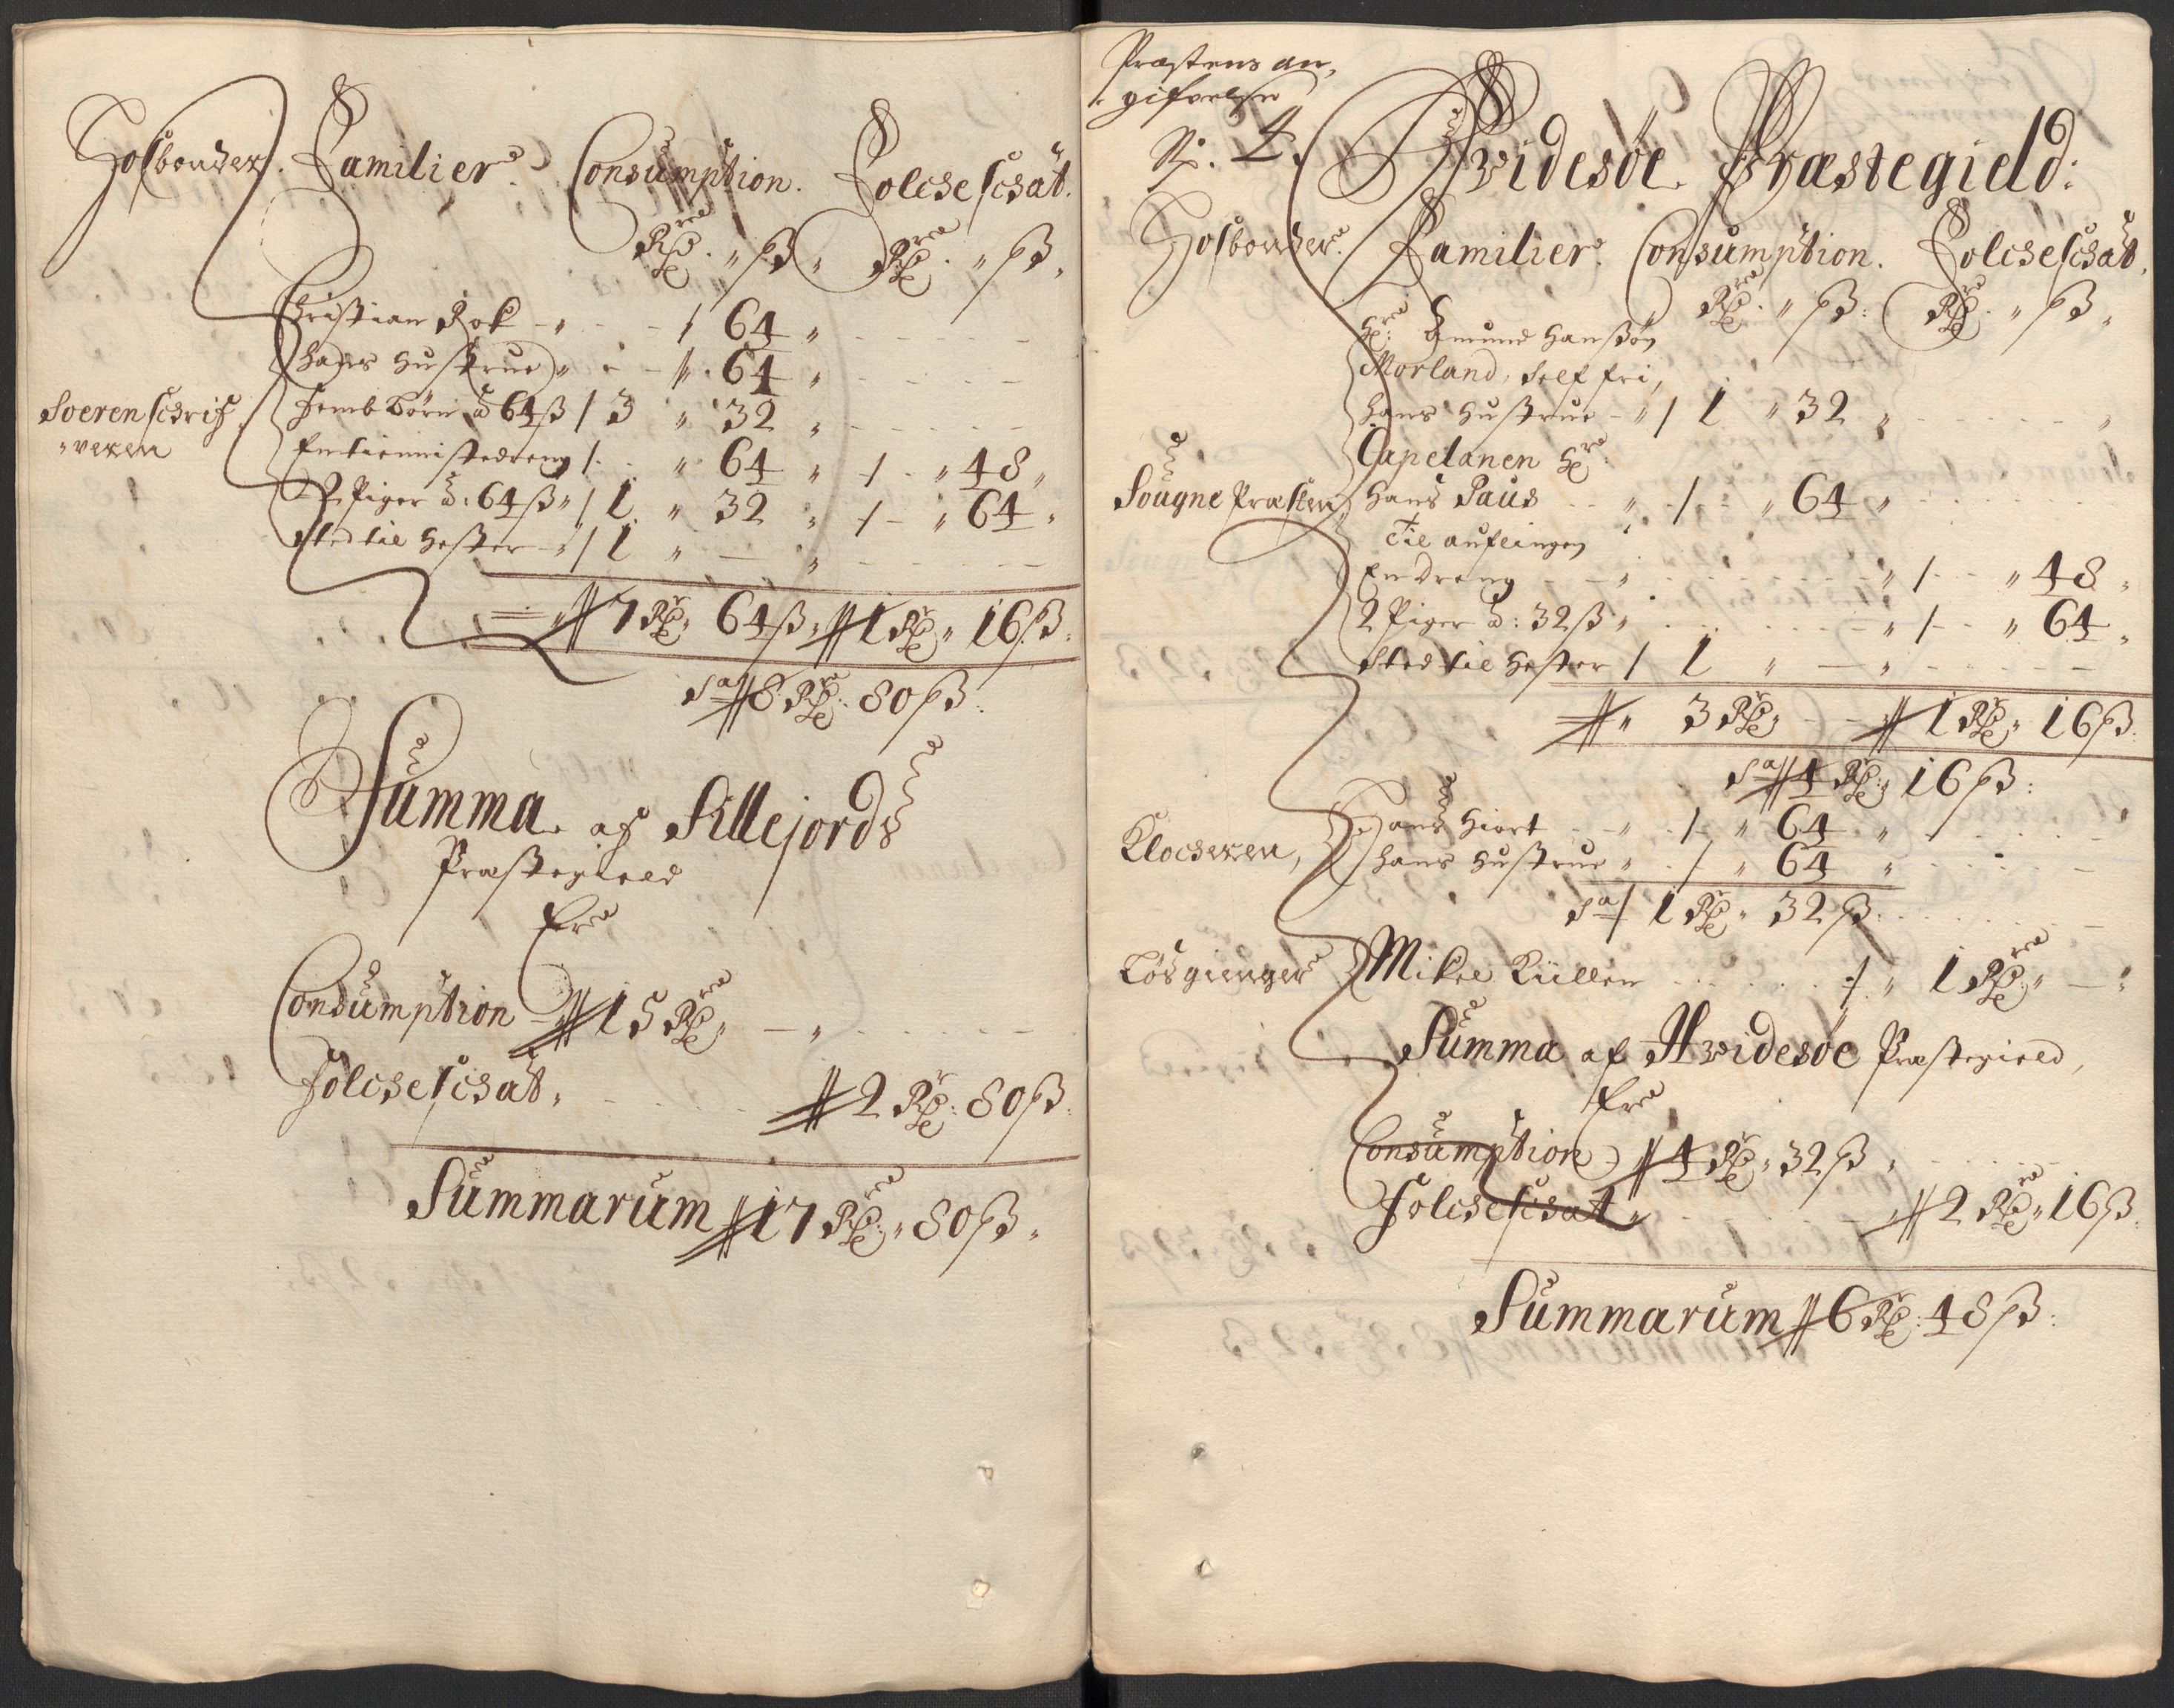 Hosbonder. Familier Consumption. Folche schat.
Rdr. " ß " Rdr. " ß "
Christian Rok - " - - / 64 "
hans Hustrue " - - " 64 "
Soerenschrif
"veren
femb börn a 64 ß / 3 " 32 "
En tienniste dreng / . " 64 " / . " 48 "
2 Piger a: 64 ß " / 1 " 32 " / - " 64 "
Sted til Hester - " / 1 " - "
7 Rdr " 64 ß " 1 Rdr " 16 ß.
Sa 8 Rdr: 80 ß:
Summa af Sillejords
Præstegield
Er
Consumption - 15 Rdr " - "
Folche schat, 2 Rdr: 80 ß:
Summarum 17 Rdr: " 80 ß "
Præstens an,
"gifvelse
No. 4.
Hvidesöe Præstegield:
Hosbonder. Familier. Consumption. Folcheschat.
Rdr. " ß: Rdr. " ß "
Hr: Amund Hansßön
Morland, self fri,
hans Hustrue - " / 1 " 32 "
Capelanen Hr:
Sougne Præsten, Hans Paus - - " - / - " 64 "
Til auflingen
En dreng - - " " / - - " 48 "
2 Piger a: 32 ß " " / - - " 64 "
Sted til Hester / 1 " - "
" 3 Rdr " - - 1 Rdr " 16 ß:
Sa 4 Rdr: 16 ß:
Klocheren, Hans Hiort - - " - / - " 64 "
hans Hustrue " - / " 64 "
Sa / 1 Rdr " 32 ß.
Lösgienger Mikel Küllen / " 1 Rdr " - "
Summa af Hvidesöe Præstegield,
Er
Consumption 4 Rdr " 32 ß "
Folcheschat " 2 Rdr " 16 ß:
Summarum 6 Rdr: 48 ß: